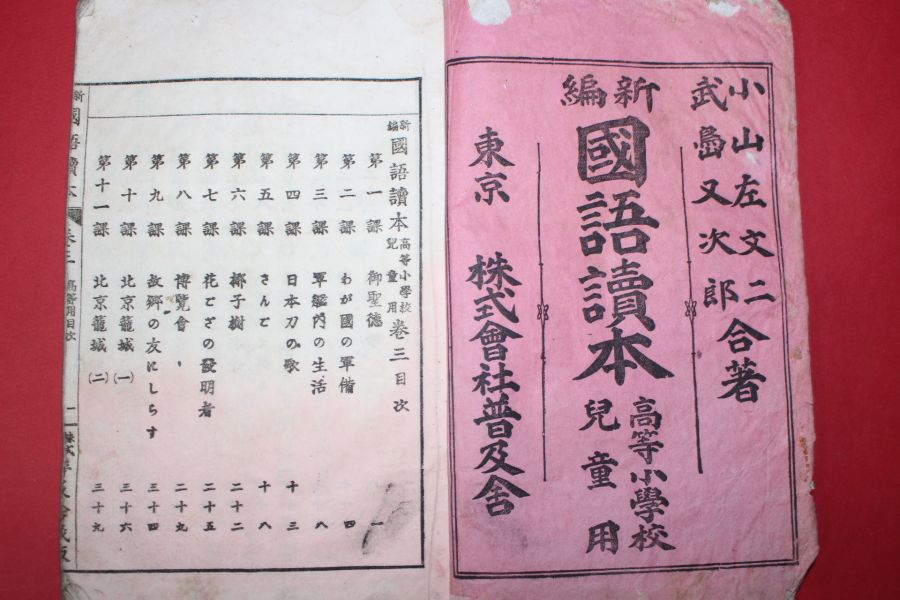 小山左文二
武嶌又次郎
合著
新編
國語讀本
高等小學校
兒童用
東京 株式會社普及舍
新編 國語讀本 高等小學校 兒童用 卷三目次
第一課 御聖徳 一
第二課 わが國の軍備 四
第三課 軍艦内の生活 八
第四課 日本刀の歌 十三
第五課 さんご 十八
第六課 椰子樹 二十二
第七課 花ござの發明者 二十五
第八課 博覽會 二十九
第九課 故郷の友にしらす 三十四
第十課 北京籠城(一) 三十六
第十一課 北京籠城(二) 三十九
新 國語讀本 卷三 高等用目次